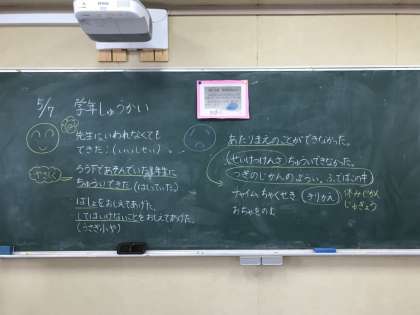 5/7 学年しゅうかい
先生にいわれなくても
できた！（いいしせい）。
やさしく
ろうかであそんでいた1年生に
ちゅういできた（はしていた）
ばしょをおしえてあげた。
してはいけないことをおしえてあげた。
（うさぎ小や）
あたりまえのことができなかった。
（せいけつけんさ）ちゅういできなかった。
つぎのじかんのようい、ふでばこの中
チャイムちゃくせき
きりかえ
休みじかん
じゅぎょう
おちゃをのむ